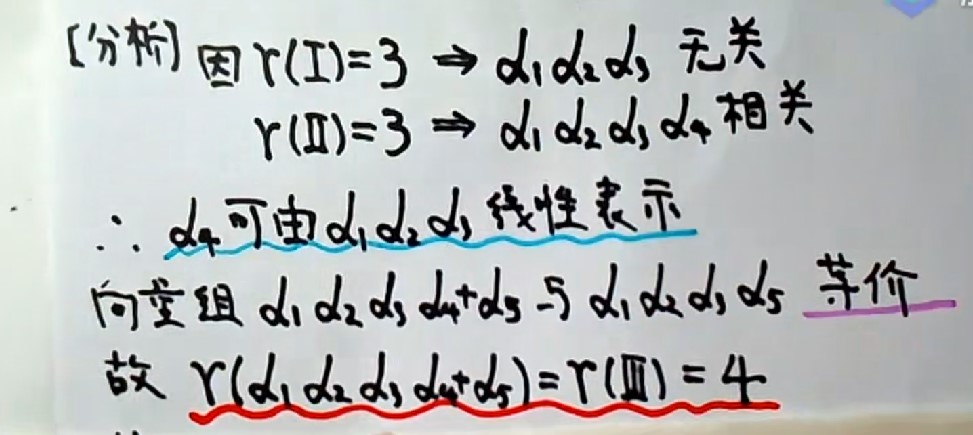 [分析] 因 r(I)=3 ⇒ α₁α₂α₃ 无关
r(II)=3 ⇒ α₁α₂α₃α₄ 相关
∴ α₄可由α₁α₂α₃线性表示
向量组 α₁α₂α₃α₄+α₅与α₁α₂α₃α₅ 等价
故 r(α₁α₂α₃α₄+α₅)=r(III)=4